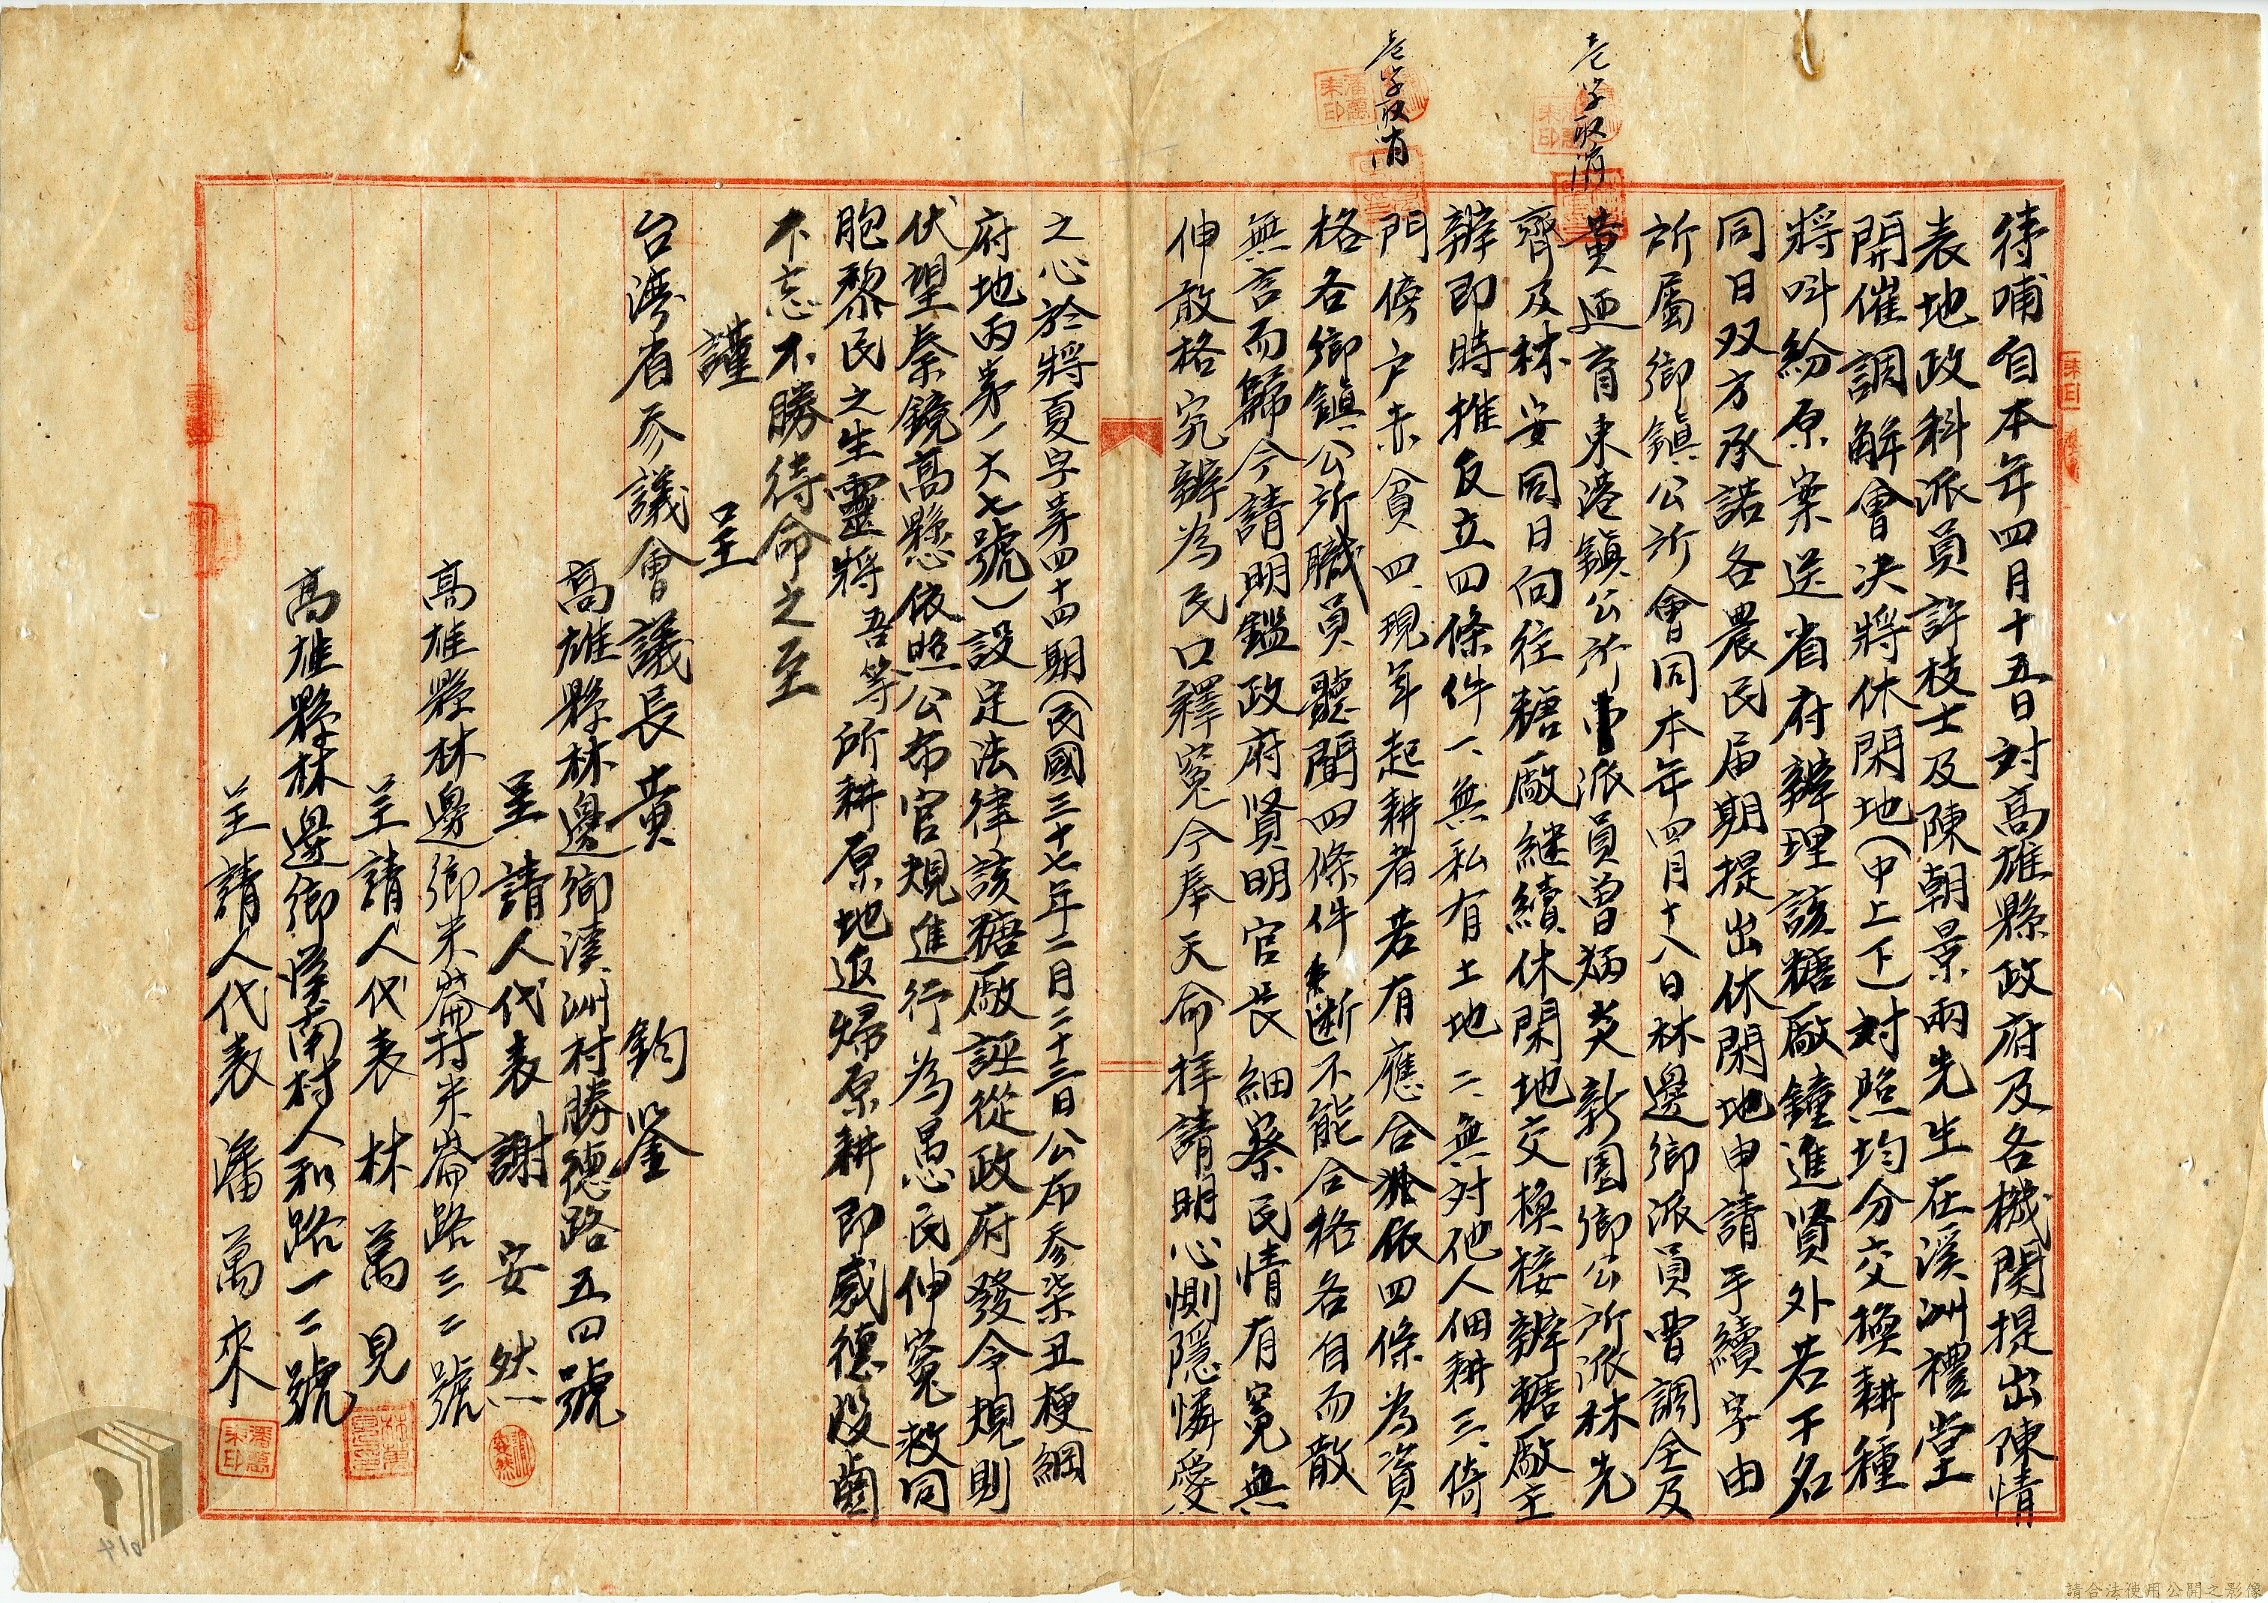 壱字取消
壱字取消
待哺自本年四月十五日対高雄縣政府及各機関提出陳情
表地政科派員許枝士及陳朝景兩先生在溪洲禮堂
開催調解會决將休閑地(中上下)対照均分交換耕種
將呌紛原案送省府辦理該糖廠鐘進賢外若干名
同日双方承諾各農民届期提出休閑地申請手續字由
所屬鄉鎮公所會同本年四月十八日林邊鄉派員曽調全及
黄廼育東港鎮公所派員曽炳炎新園鄉公所派林先
齊及林安同日向往糖廠継續休閑地交換接辦糖廠主
辦即時推反立四條件一、無私有土地二、無対他人佃耕三、倚
門傍户赤貧四、現年起耕者若有應合依四條為資
格各鄉鎮公所職員聽聞四條件断不能合格各自而散
無言而歸今請明鑑政府賢明官長細察民情有冤無
伸敢格究辦為民口釋冤今奉天命拝請明心惻隱憐愛
之心於將夏字第四十四期(民國三十七年二月二十三日公布参柒丑梗綱
府地丙第一六七號)設定法律該糖廠誣從政府發令規則
伏望秦鏡高懸依照公布官規進行為愚民伸冤救同
胞黎民之生靈將吾等所耕原地返帰原耕即感德没齒
不忘不勝待命之至
謹 呈
台湾省参議會議長黄 鈞鉴
高雄縣林邊鄉溪洲村勝德路五四號
呈請人代表 謝安然
高雄縣林邊鄉米崙村米崙路三二號
呈請人代表 林萬見
高雄縣林邊鄉溪南村人和路一二號
呈請人代表 潘萬來
潘萬來印
014
請合法使用公開之影像